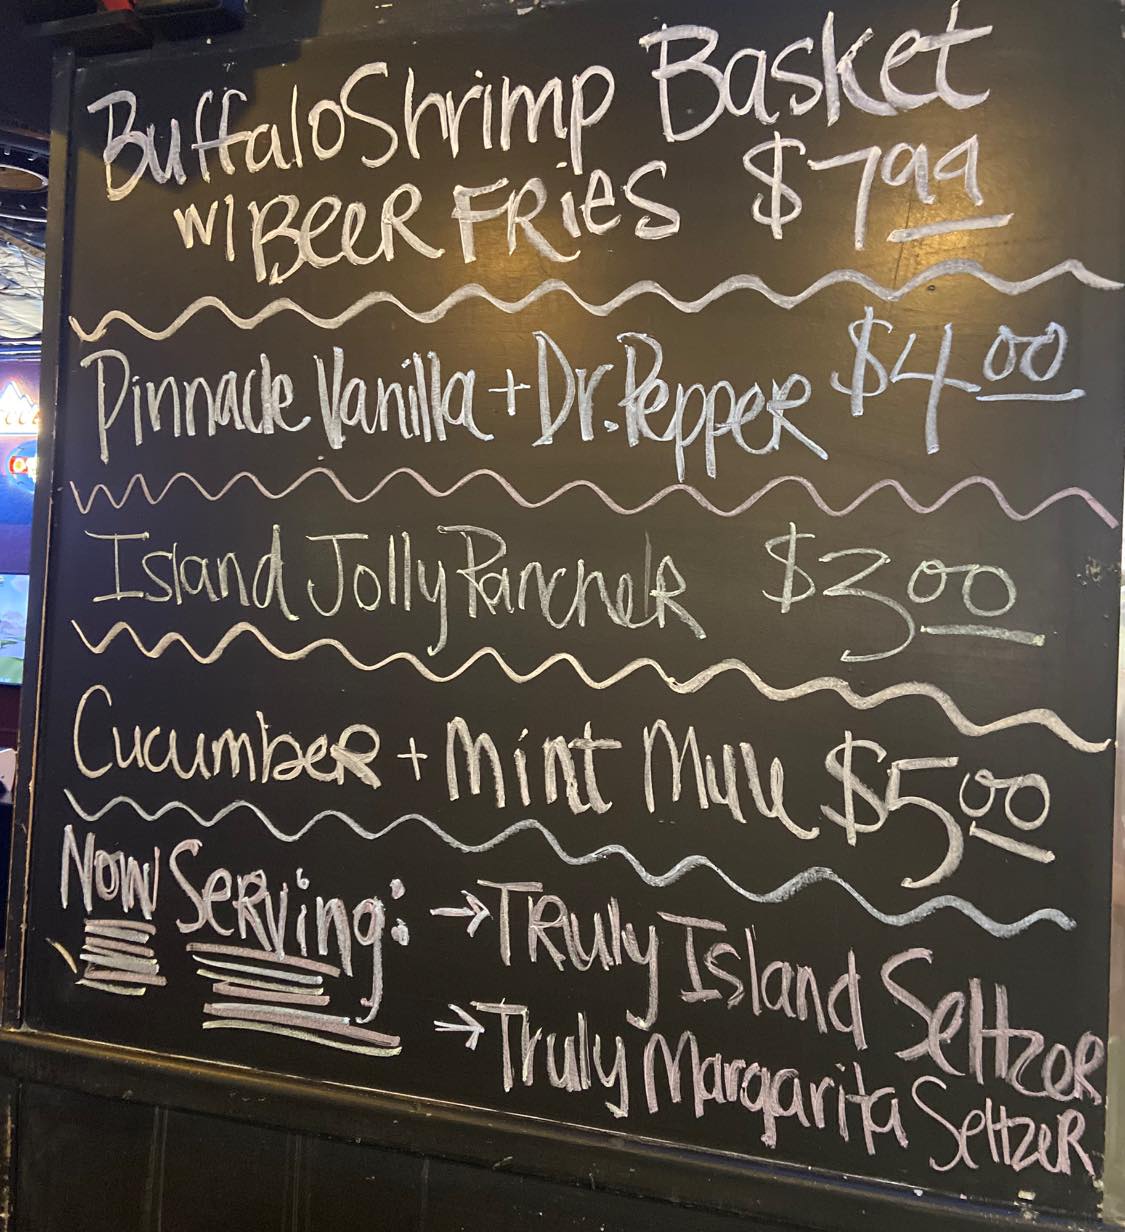 Buffalo Shrimp Basket
w/ BEER FRiES $7.99
Pinnacle Vanilla + Dr. Pepper $4.00
Island Jolly Rancher $3.00
Cucumber + Mint Mule $5.00
Now Serving: → TRuly Island Seltzer
→ Truly Margarita Seltzer